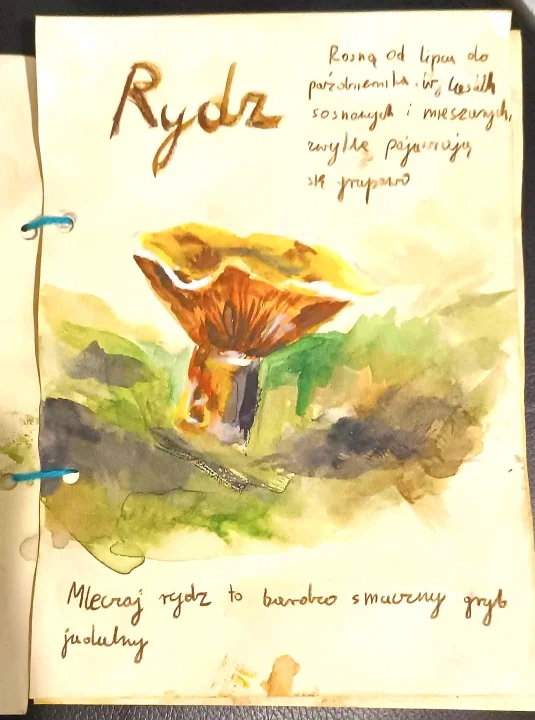 Rydz
Rosną od lipca do
października. W lasach
sosnowych i mieszanych,
zwykle pojawiają
się grupowo
Mleczaj rydz to bardzo smaczny grzyb
jadalny